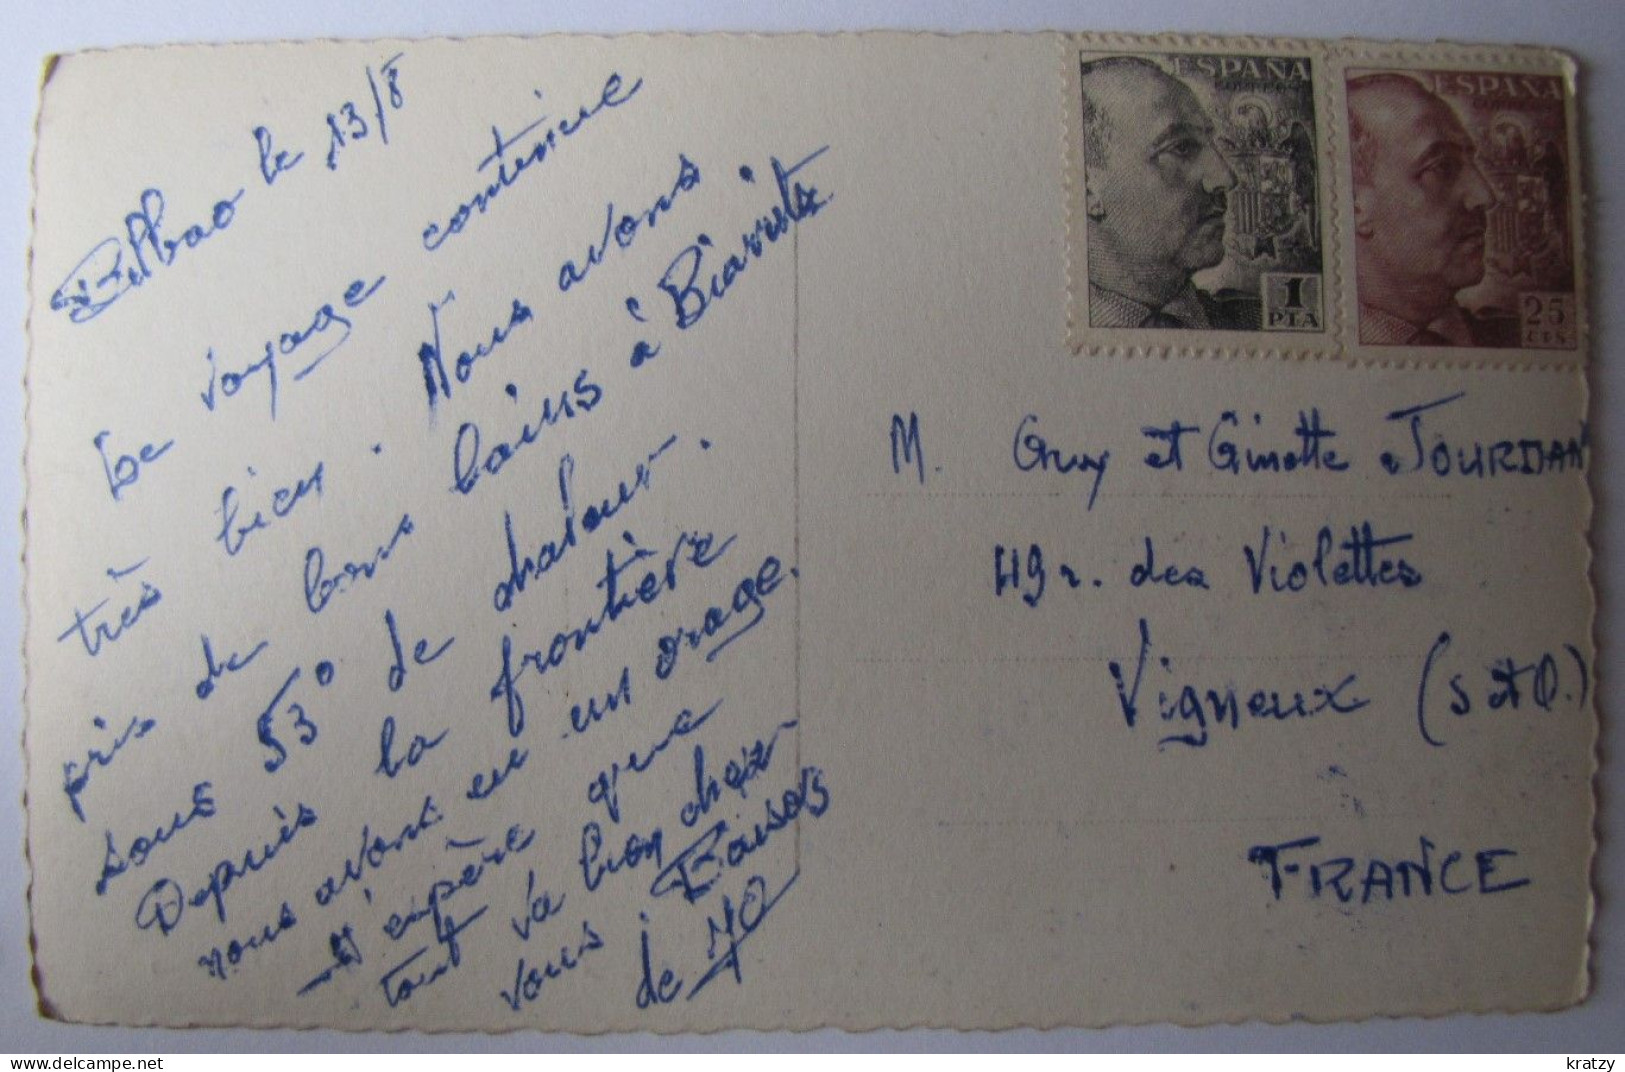 Bilbao le 13/8
Le voyage continue
très bien. Nous avons
pris de bons bains à Biarritz
sous 53° de chaleur.
Depuis la frontière
nous avons eu un orage.
J'espère que
tout va bien chez
vous. Baisers
de
ESPAÑA
CORREOS
1
PTA
ESPAÑA
CORREOS
25
CTS
M. Guy et Ginette JOURDAN
49 r. des Violettes
Vigneux (S et O.)
FRANCE
kratzy